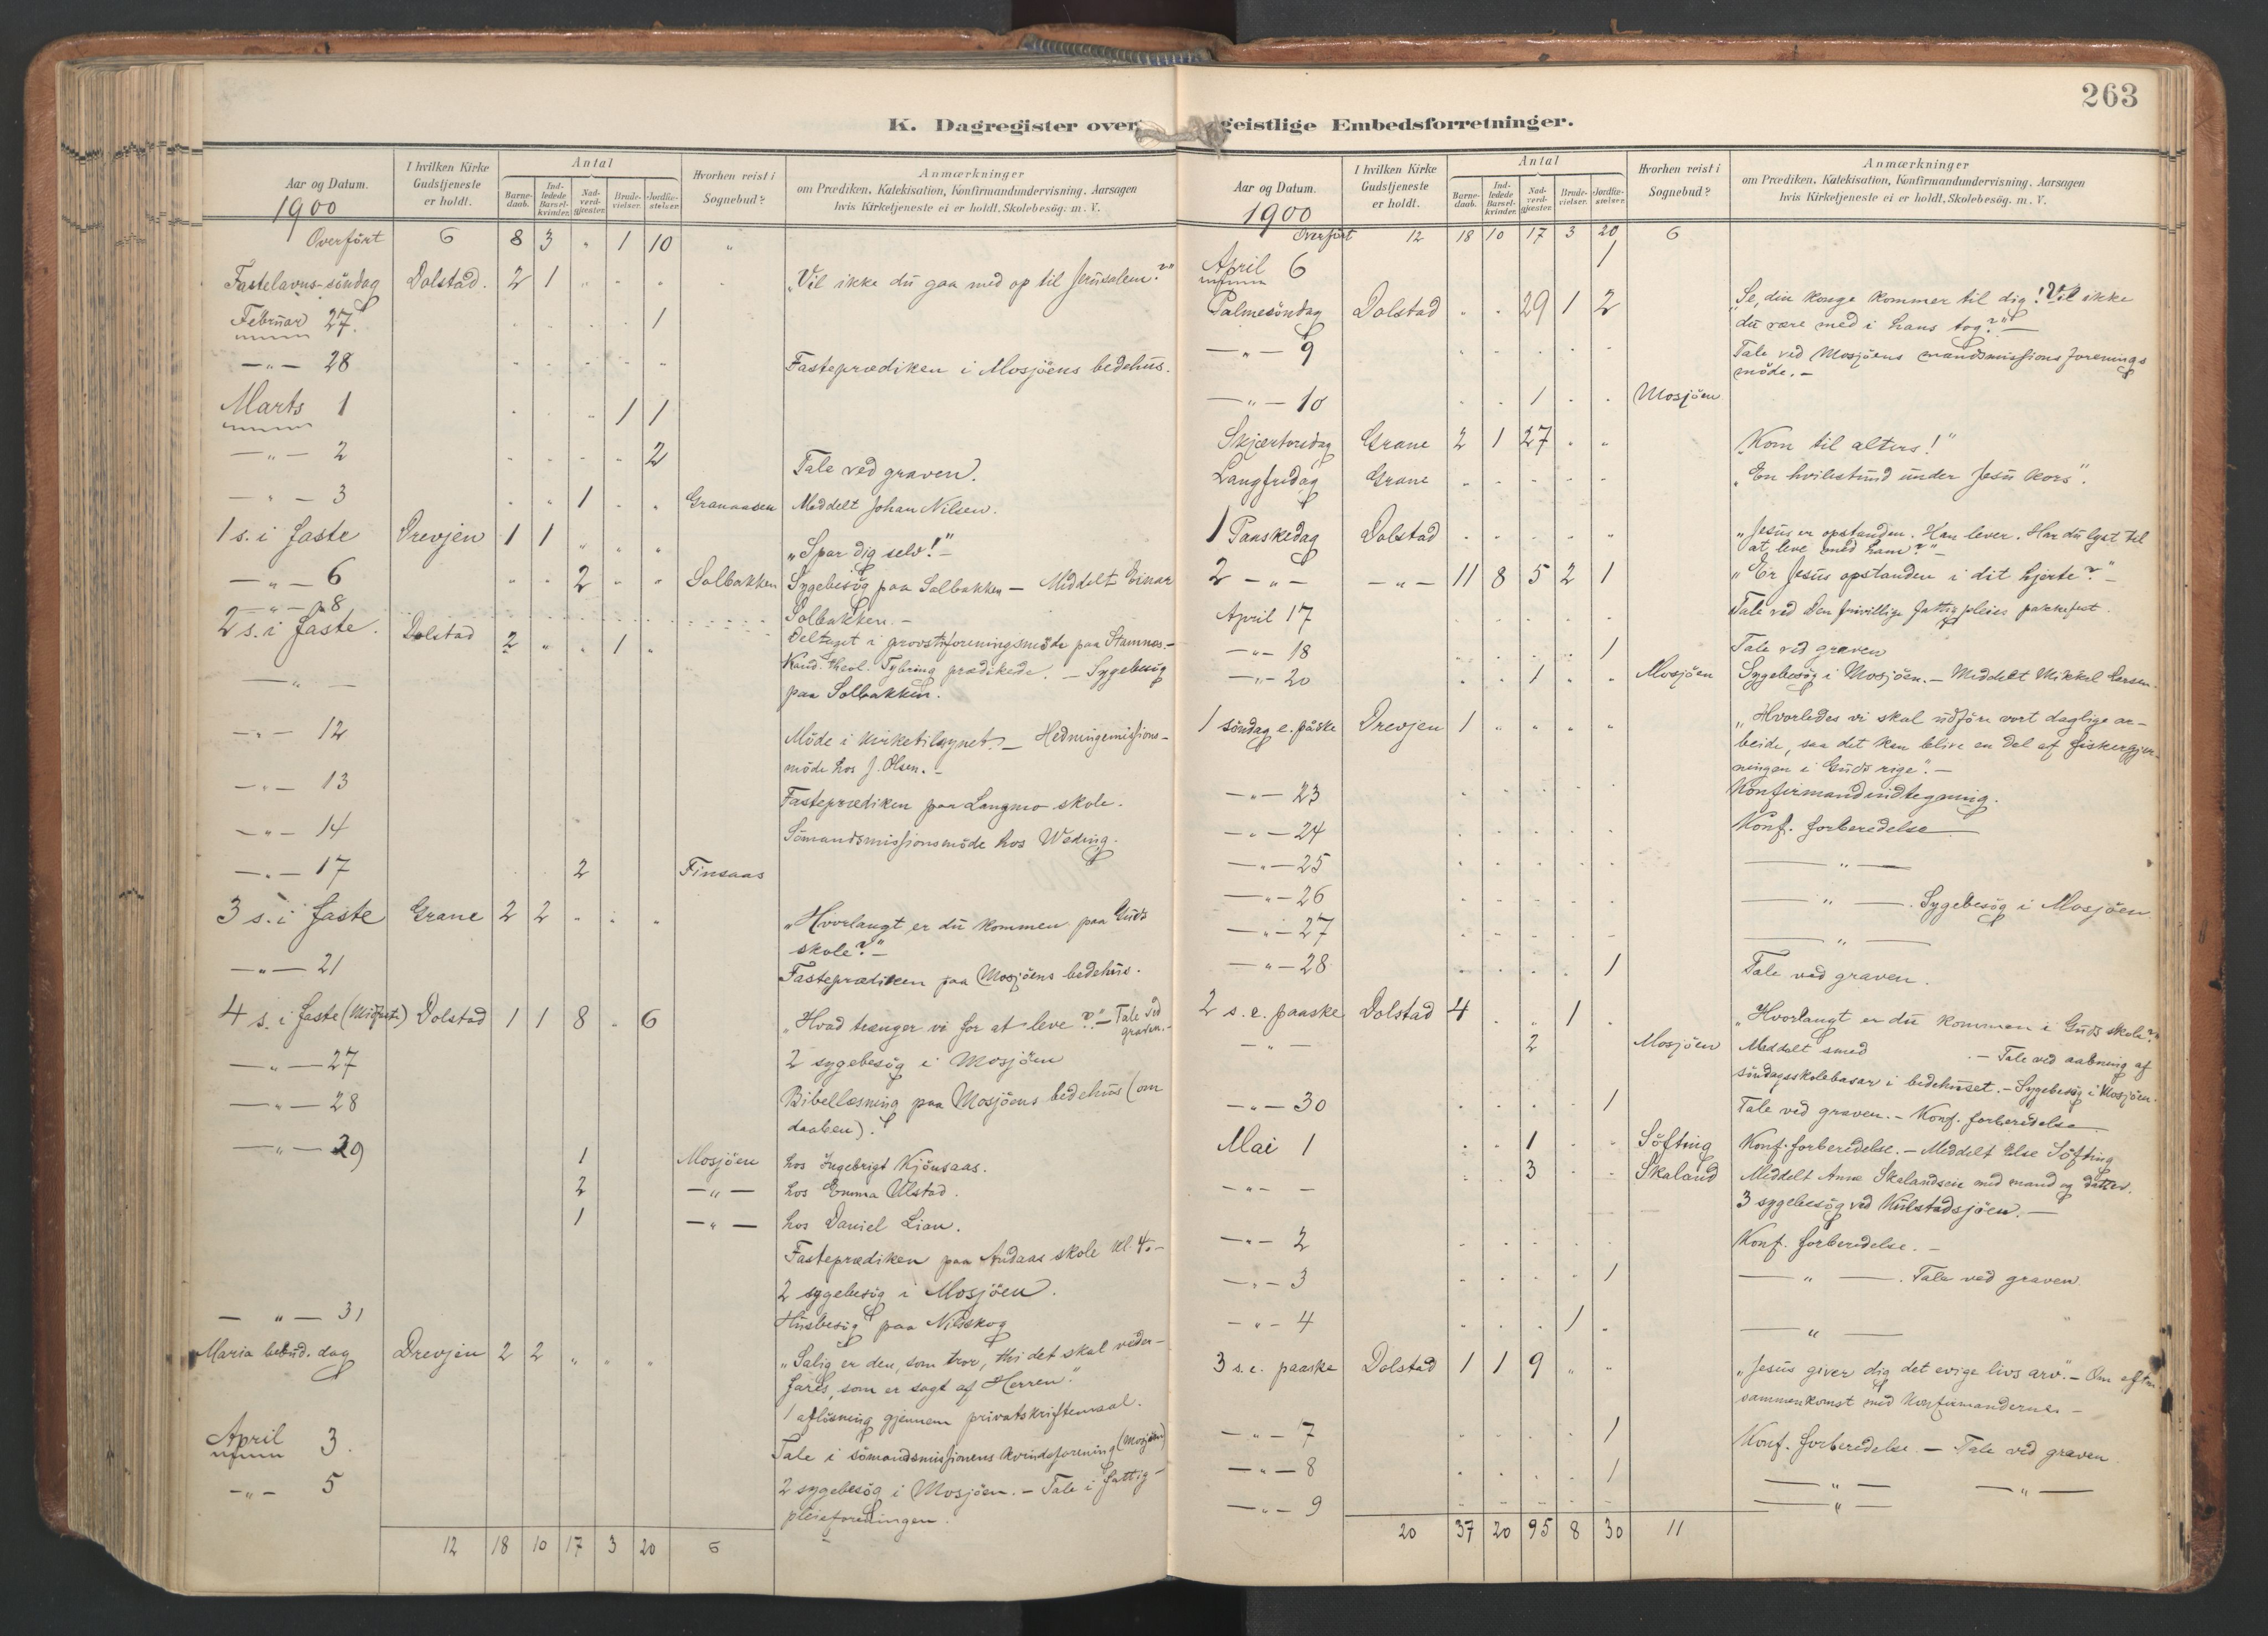 263
K. Dagregister over geistlige Embedsforretninger.
Aar og Datum. 1900 | I hvilken Kirke Gudstjeneste er holdt. | Antal | Barnedaab. | Indledede Barselkvinder. | Nadverdgjester. | Brudevielser. | Jordfæstelser. | Hvorhen reist i Sognebud? | Anmærkninger om Prædiken, Katekisation, Konfirmandundervisning, Aarsagen hvis Kirketjeneste ei er holdt, Skolebesög. m. V.
Overfört 6 8 3 " 1 10 "
Fastelavns-söndag Dolstad. 2 1 " " " "Vil ikke du gaa med op til Jerusalem?"
Februar 27. 1
—"— 28 Fasteprædiken i Mosjöens bedehus.
Marts 1 1 1
—"— 2 2 Tale ved graven.
—"— 3 1 Granaasen Meddelt Johan Nilsen.
1 s. i faste Drevjen 1 1 " " " "Spar dig selv!"—
—"— 6 2 Solbakken Sygebesög paa Solbakken — Meddelt Einar
Solbakken.—
—"— 8 Deltaget i provstiforeningsmöde paa Stamnes.—
2 s. i faste. Dolstad 2 " " 1 " Kand. theol. Tybring prædikede. — Sygebesög
—"— paa Solbakken.
—"— 12 Möde i kirketilsynet. — Hedningemissions-
möde hos J. Olsen.—
—"— 13 Fasteprædiken paa Langmo skole.
—"— 14 Sömandsmissionsmöde hos Weding.
—"— 17 2 Finsaas
3 s. i faste Grane 2 2 " " " "Hvorlangt er du kommen paa Guds
skole?"—
—"— 21 Fasteprædiken paa Mosjöens bedehus.
4 s. i faste (Midfaste) Dolstad 1 1 8 " 6 "Hvad trænger vi for at leve?"— Tale ved
graven.—
—"— 27 2 sygebesög i Mosjöen
—"— 28 Bibellæsning paa Mosjöens bedehus (om
daaben).
—"— 29 1 Mosjöen hos Ingebrigt Kjönsaas.
2 —"— hos Emma Ulstad.
1 —"— hos Daniel Lian.
Fasteprædiken paa Andaas skole kl. 4.—
2 sygebesög i Mosjöen.
—"— 31 Husbesög paa Nilsskog
Maria bebud. dag Drevjen 2 2 " " " "Salig er den, som tror, thi det skal veder-
fares, som er sagt af Herren."
1 aflösning gjennem privatskriftemaal.
April 3. Tale i sömandsmissionens kvindeforening (Mosjöen)
—"— 5 2 sygebesög i Mosjöen. — Tale i fattig-
pleieforeningen.
12 18 10 17 3 20 6
Aar og Datum. 1900 | I hvilken Kirke Gudstjeneste er holdt. | Antal | Barnedaab. | Indledede Barselkvinder. | Nadverdgjester. | Brudevielser. | Jordfæstelser. | Hvorhen reist i Sognebud? | Anmærkninger om Prædiken, Katekisation, Konfirmandundervisning, Aarsagen hvis Kirketjeneste ei er holdt, Skolebesög. m. V.
Overfört 12 18 10 17 3 20 6
April 6 1
Palmesöndag Dolstad " " 29 1 2 "Se, din konge kommer til dig! Vil ikke
du være med i hans tog?"—
—"— 9 Tale ved Mosjöens mandsmissionsforenings
möde.—
—"— 10 1 Mosjöen
Skjærtorsdag Grane 2 1 27 " " "Kom til alters!"
Langfredag Grane "En hvilestund under Jesu kors".
1 Paaskedag Dolstad "Jesus er opstanden. Han lever. Har du lyst til
at leve med ham?"—
2 —"— —"— 11 8 5 2 1 "Er Jesus opstanden i dit hjerte?"—
April 17 Tale ved Den frivillige fattigpleies
—"— 18 1 Tale ved graven
—"— 20 1 Mosjöen Sygebesög i Mosjöen. — Meddelt Mikkel Larsen.
1 söndag e. påske Drevjen 1 " " " " "Hvorledes vi skal udföre vort daglige ar-
beide, saa det kan blive en del af fiskergjer-
ningen i Guds rige".—
—"— 23 Konfirmandindtegning.
—"— 24 Konf. forberedelse
—"— 25 —"—
—"— 26 —"—. Sygebesög i Mosjöen
—"— 27 —"—
—"— 28 1 Tale ved graven.
2 s. e. paaske Dolstad 4 " " 1 " "Hvorlangt er du kommen i Guds skole?"
—"— 2 Mosjöen Meddelt smed .— Tale ved aabning af
söndagsskolebasar i bedehuset. — Sygebesög i Mosjöen.
—"— 30 1 Tale ved graven. — Konf. forberedelse
Mai 1 1 Söfting Konf. forberedelse. — Meddelt Else Söfting
—"— 3 Skaland Meddelt Anne Skalandseie med mand og datter.
3 sygebesög ved Kulstadsjöen.—
—"— 2 Konf. forberedelse.—
—"— 3 1 —"—. Tale ved graven.
—"— 4 1 —"—
3 s. e. paaske Dolstad 1 1 9 " " "Jesus giver dig det evige livs arv".— Om eftm.
sammenkomst med konfirmanderne.—
—"— 7 1 Konf. forberedelse — Tale ved graven.
—"— 8 1 —"— —"—
—"— 9 —"—
20 37 20 95 8 30 11